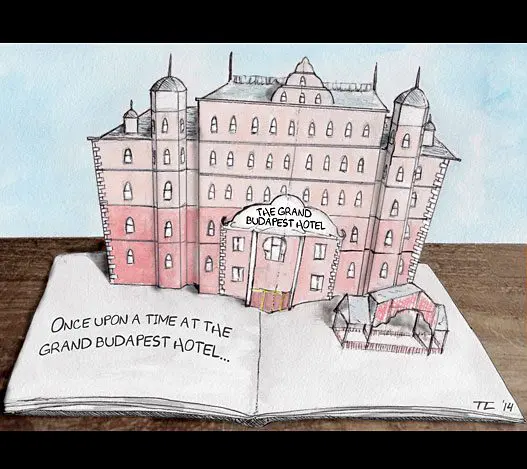 THE GRAND
BUDAPEST HOTEL
ONCE UPON A TIME AT THE
GRAND BUDAPEST HOTEL...
TC '14